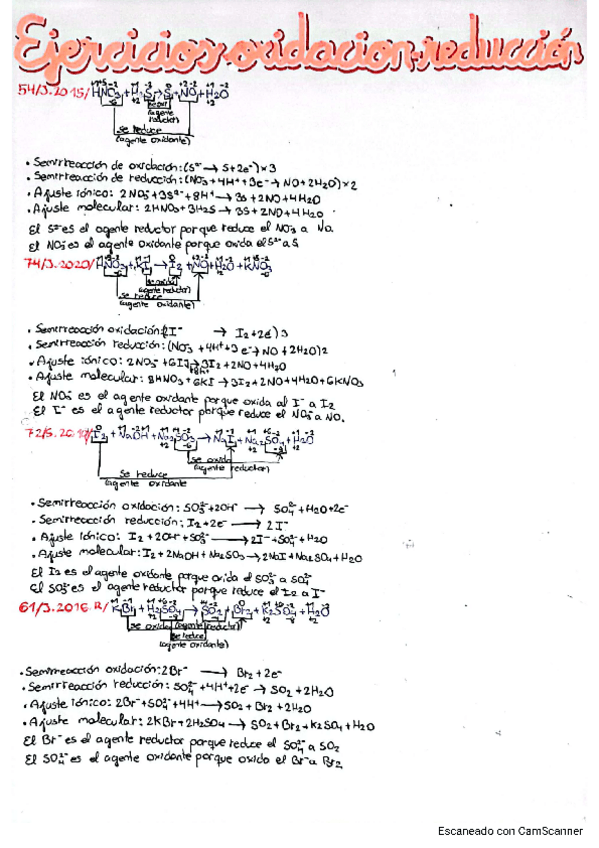 Ejercicios oxidacion-reducción
54/J.2015/ HNO3 + H2S → S + NO + H2O
se oxi
(agente reductor)
se reduce
(agente oxidante)
• Semirreacción de oxidación: (S²⁻ → S+2e⁻)×3
• Semirreacción de reducción: (NO3⁻+4H⁺+3e⁻→ NO+2H2O)×2
• Ajuste iónico: 2NO3⁻+3S²⁻+8H⁺ → 3S+2NO+4H2O
• Ajuste molecular: 2HNO3+3H2S → 3S+2NO+4H2O
El S²⁻ es el agente reductor porque reduce el NO3⁻ a NO.
El NO3⁻ es el agente oxidante porque oxida el S²⁻ a S.
74/J.2020/ HNO3 + KI → I2 + NO + H2O + KNO3
se oxida
(agente reductor)
se reduce
(agente oxidante)
• Semirreacción oxidación: (2I⁻ → I2+2e⁻)3
• Semirreacción reducción: (NO3⁻ +4H⁺+3e⁻→ NO+2H2O)2
• Ajuste iónico: 2NO3⁻+6I⁻+8H⁺→3I2+2NO+4H2O
• Ajuste molecular: 8HNO3+6KI → 3I2+2NO+4H2O+6KNO3
El NO3⁻ es el agente oxidante porque oxida al I⁻ a I2
El I⁻ es el agente reductor porque reduce el NO3⁻ a NO.
I2 + NaOH + Na2SO3 → NaI + Na2SO4 + H2O
se oxida
(agente reductor)
se reduce
(agente oxidante
• Semirreacción oxidación: SO3²⁻+2OH⁻ → SO4²⁻+H2O+2e⁻
• Semirreacción reducción: I2+2e⁻ → 2I⁻
• Ajuste iónico: I2+2OH⁻+SO3²⁻ → 2I⁻+SO4²⁻+H2O
• Ajuste molecular: I2+2NaOH+Na2SO3→2NaI+Na2SO4+H2O
El I2 es el agente oxidante porque oxida el SO3²⁻ a SO4²⁻
El SO3²⁻ es el agente reductor porque reduce el I2 a I⁻
61/J.2016.R/ KBr + H2SO4 → SO2 + Br2 + K2SO4 + H2O
se oxida (agente reductor)
se reduce
(agente oxidante)
• Semirreacción oxidación: 2Br⁻ → Br2+2e⁻
• Semirreacción reducción: SO4²⁻+4H⁺+2e⁻ → SO2+2H2O
• Ajuste iónico: 2Br⁻+SO4²⁻+4H⁺→ SO2+Br2+2H2O
• Ajuste molecular: 2KBr+2H2SO4 → SO2+Br2+K2SO4+H2O
El Br⁻ es el agente reductor porque reduce el SO4²⁻ a SO2
El SO4²⁻ es el agente oxidante porque oxida el Br⁻ a Br2
Escaneado con CamScanner